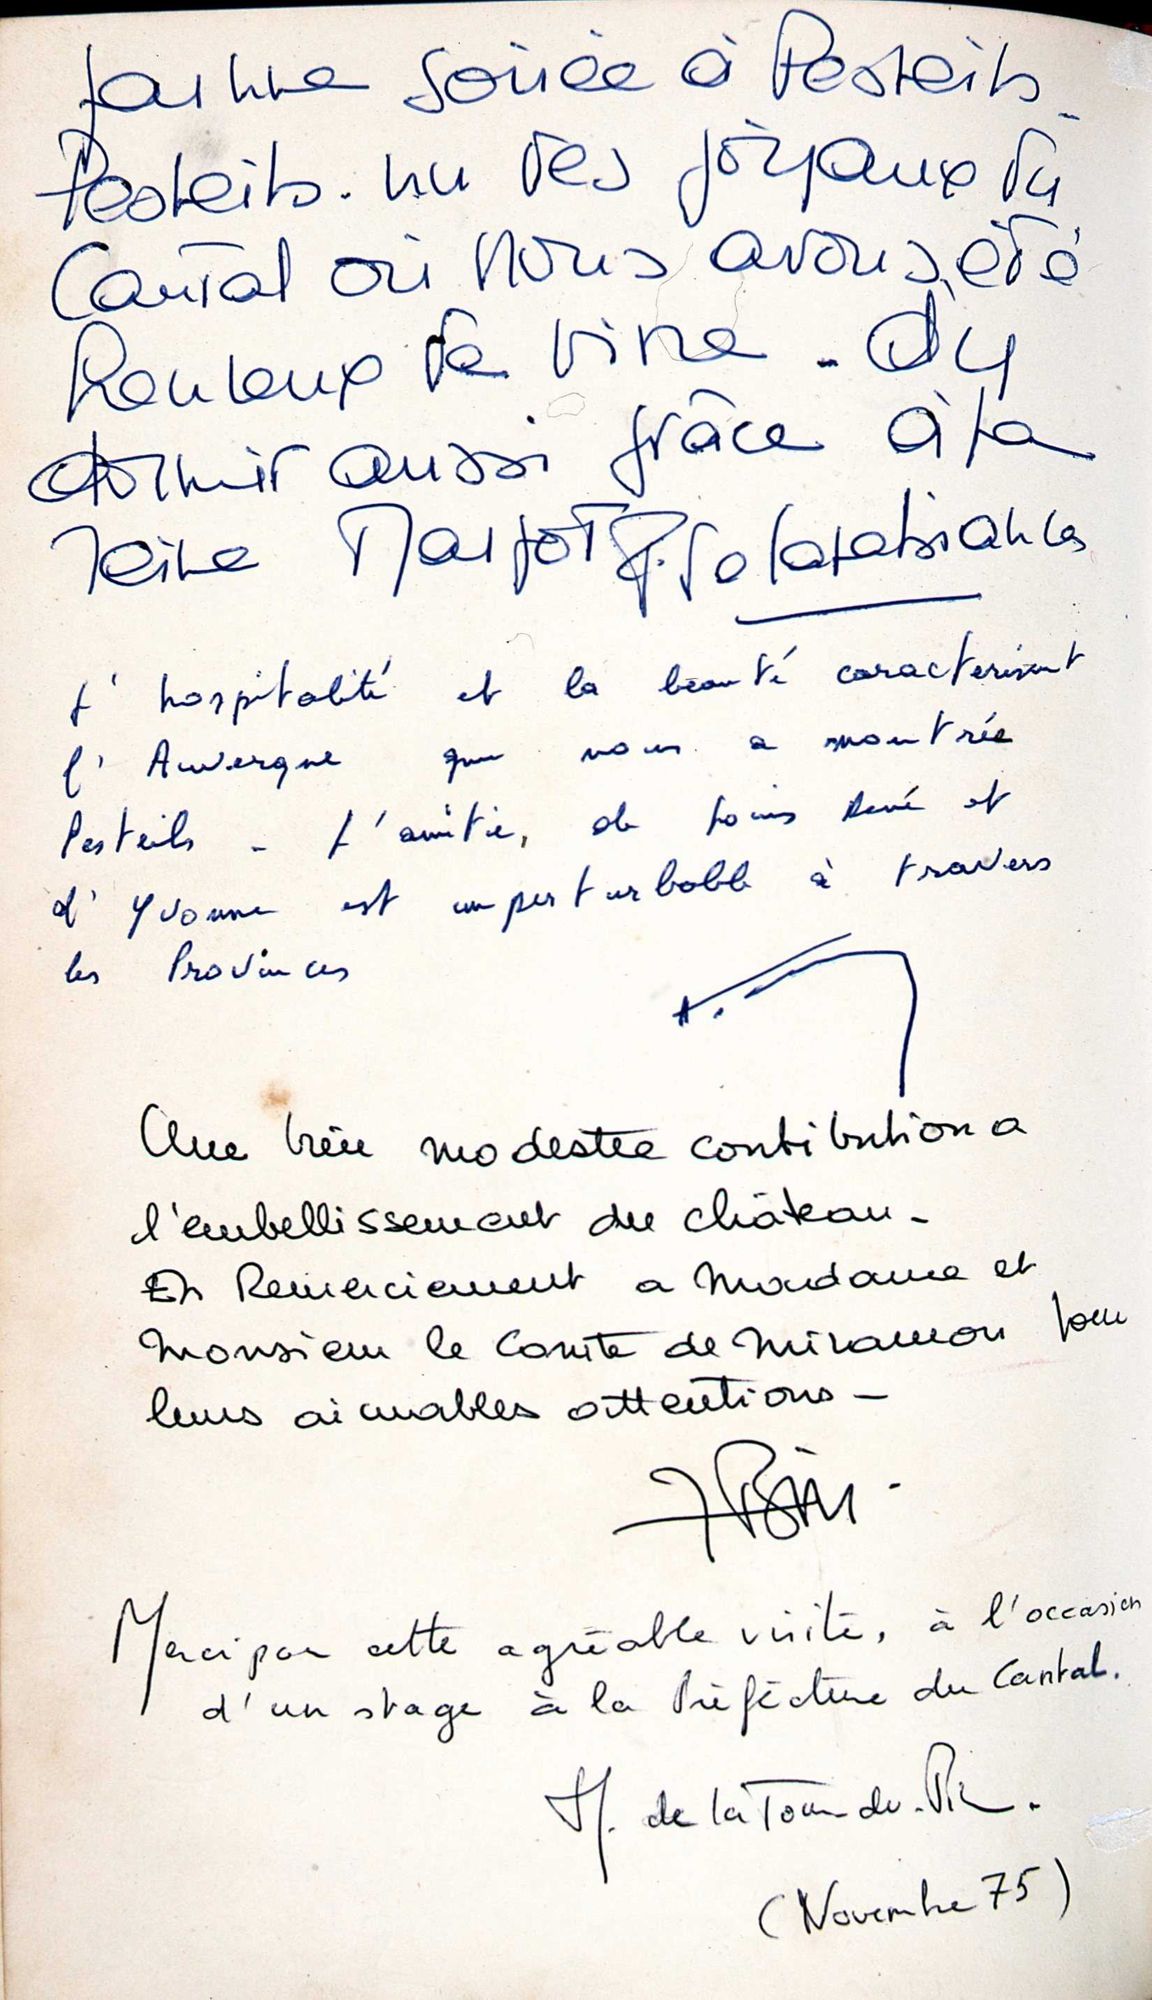 bonne soirée à Pesteils.
Pesteils. un des joyaux du
Cantal où nous avons été
heureux de vivre - d'y
dormir aussi grâce à la
reine Margot
L'hospitalité et la beauté caractérisent
l'Auvergne que nous a montrée
Pesteils - L'amitié, de Louis René et
d'Yvonne est imperturbable à travers
les Provinces
Une très modeste contribution a
l'embellissement du château -
En Remerciement a Madame et
Monsieur le Comte de Miramon pour
leurs aimables attentions -
Merci pour cette agréable visite, à l'occasion
d'un stage à la Préfecture du Cantal.
de la Tour-du-Pin.
(Novembre 75)